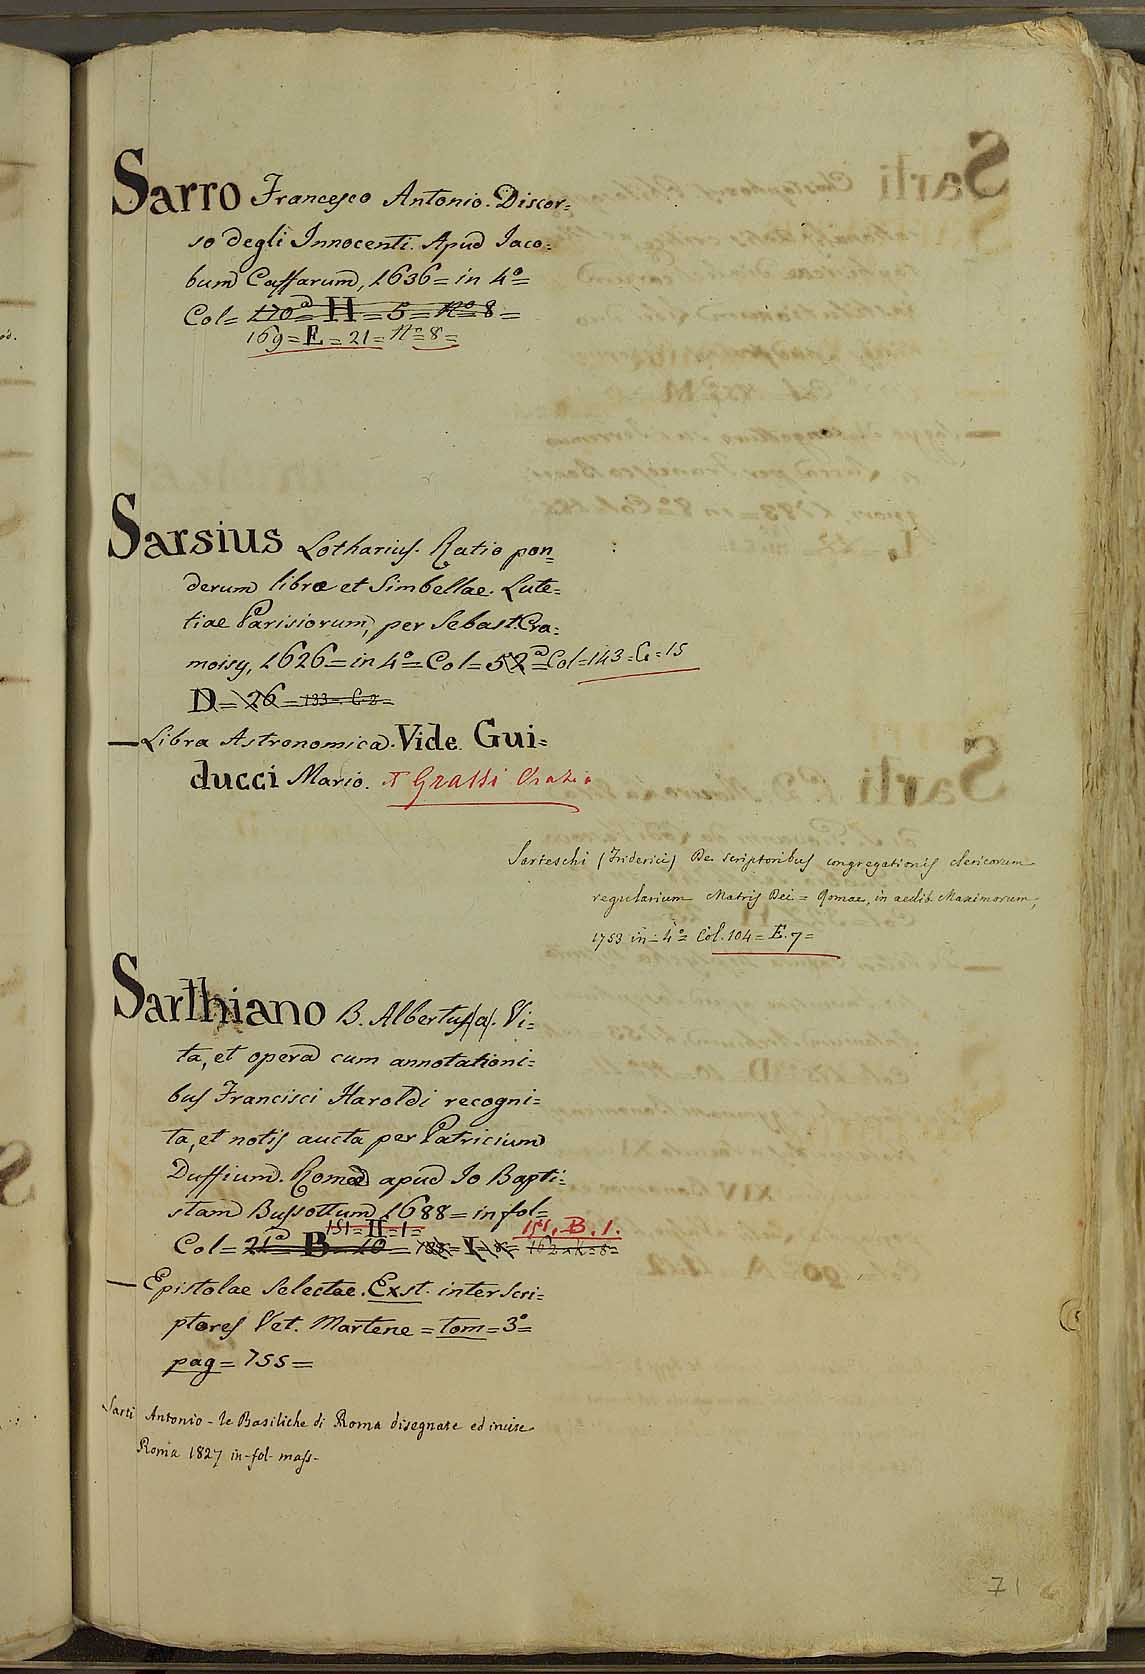 Sarro Francesco Antonio. Discor=
so degli Innocenti. Apud Iaco=
bum Caffarum, 1636= in 4°=
Col= 170ª= H= 5= N°= 8=
169= E= 21= N°= 8=
Sarsius Lotharius. Ratio pon=
derum librae et Simbellae. Lute=
tiae Parisiorum, per Sebast. Cra=
moisy, 1626= in 4°= Col= 52ª= Col= 143= G= 15
D= 26= 133= C. 2=
— Libra Astronomica. Vide Gui=
ducci Mario. + Grassi Orazio
Sarteschi (Friderici) De scriptoribus congregationis clericorum
regularium Matris Dei = Romae, in aedib. Maximorum,
1753 in- 4°= Col. 104= E. 7=
Sarthiano B. Albertus (a). Vi=
ta, et opera cum annotationi=
bus Francisci Haroldi recogni=
ta, et notis aucta per Patricium
Duffium. Romae apud Io Bapti=
stam Bussottum 1688= in fol=
151= H= 1= 151. B. 1.
Col= 21ª= B= 10=
— Epistolae Selectae. Exst. inter Scri=
ptores Vet. Martene= tom= 3°=
pag= 755=
Sarti Antonio - le Basiliche di Roma disegnate ed incise
Roma 1827 in-fol- mass-
71